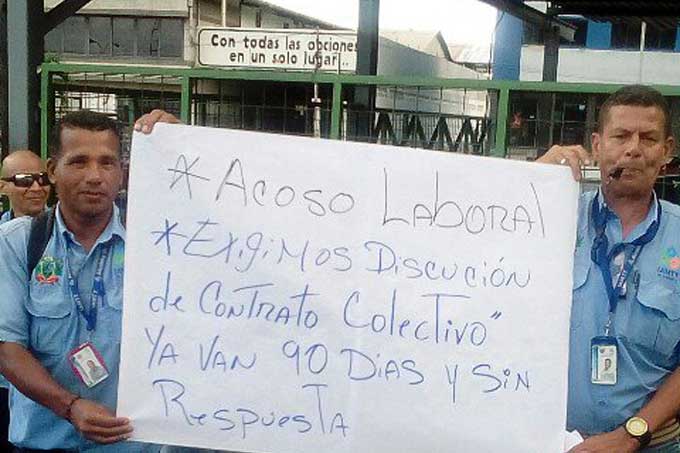 Con todas las opciones
en un solo lugar...
* Acoso Laboral
* Exigimos Discución
de Contrato Colectivo"
Ya Van 90 Días y Sin
Respuesta